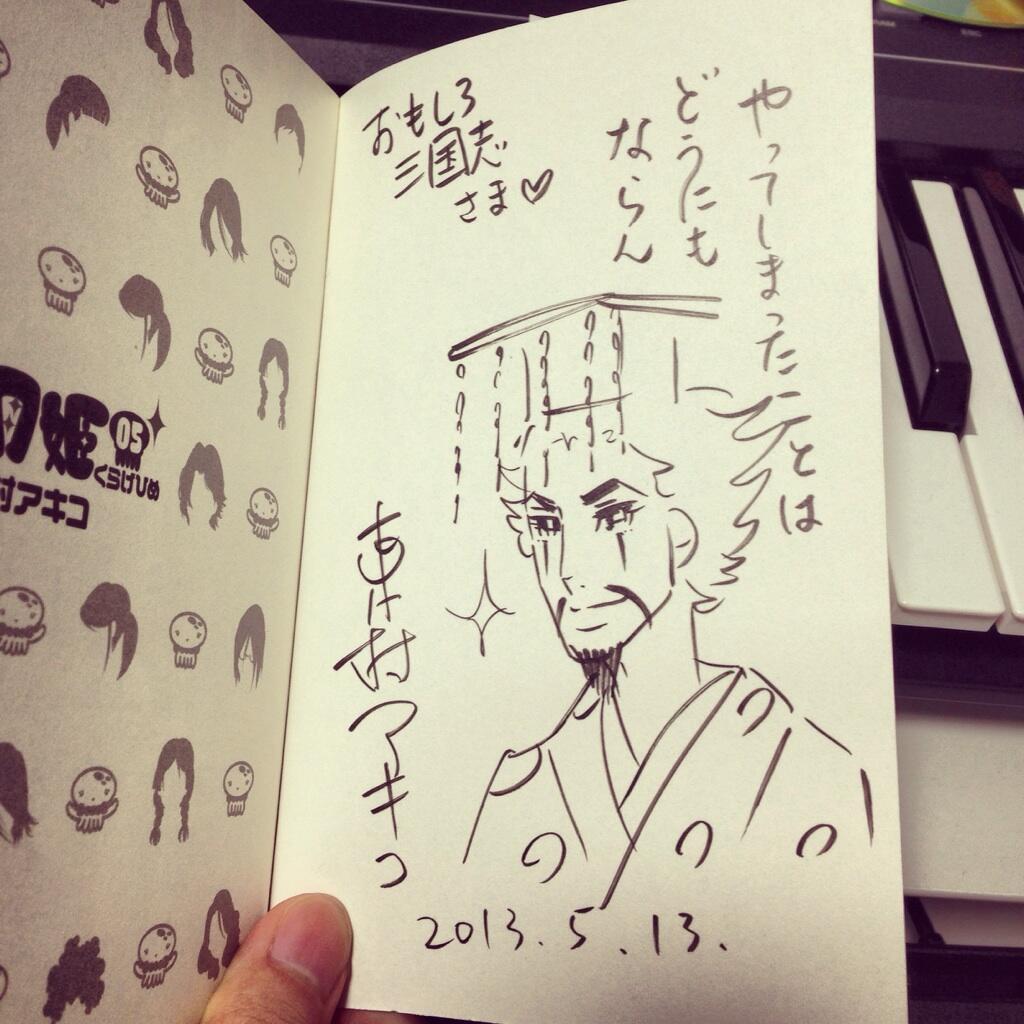 おもしろ
三国志
さま♡
やってしまったことは
どうにも
ならん
東村アキコ
2013.5.13.
月姫
05
くらげひめ
村アキコ